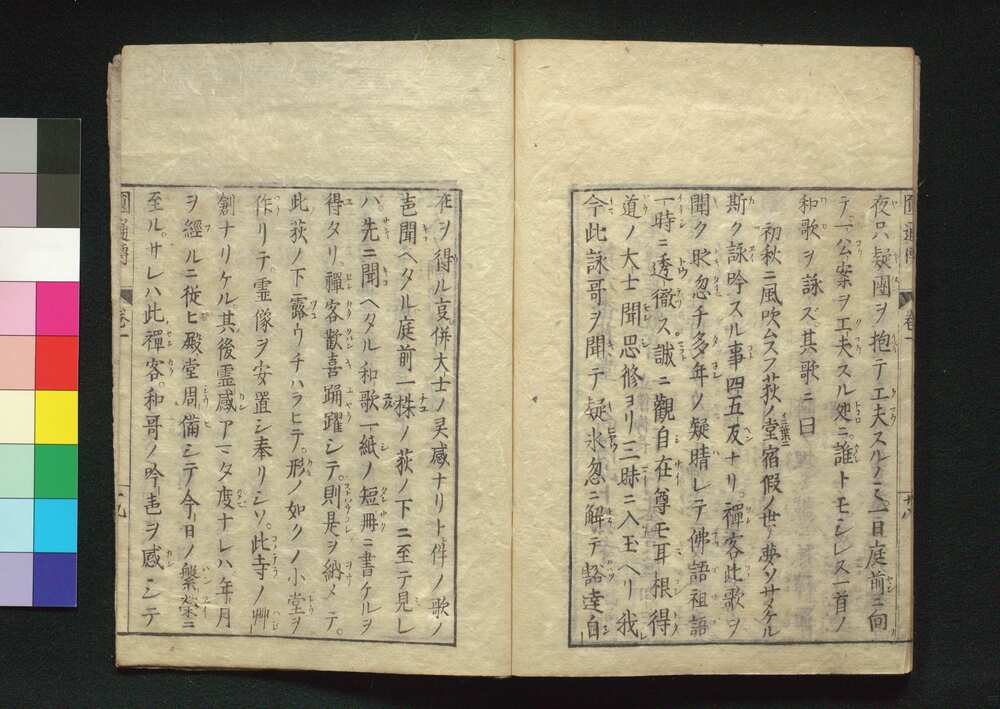 夜只疑團ヲ抱テ工夫スルノミ一日庭前ニ向
テ一公案ヲ工夫スル処ニ誰トモシレス一首ノ
和歌ヲ詠ズ其歌ニ曰
初秋ニ風吹ムスフ荻ノ堂宿假ノ世ノ夢ソサメケル
斯ク詠吟スル事四五反ナリ禪客此歌ヲ
聞ク时忽チ多年ノ疑晴レテ佛語祖語
一時ニ透徹ス誠ニ觀自在尊モ耳根得
道ノ大士聞思修ヨリ三昧ニ入玉ヘリ我
今此詠哥ヲ聞テ疑氷忽ニ解テ豁達自
在ヲ得ル㕝併大士ノ冥感ナリト件ノ歌ノ
声聞ヘタル庭前一株ノ荻ノ下ニ至テ見レ
ハ先ニ聞ヘタル和歌一紙ノ短冊ニ書ケルヲ
得タリ禪客歡喜踊躍シテ則是ヲ納メテ
此荻ノ下露ウチハラヒテ形ノ如クノ小堂ヲ
作リテ霊像ヲ安置シ奉リシソ此寺ノ艸
創ナリケル其後霊感アマタ度ナレハ年月
ヲ經ルニ従ヒ殿堂周備シテ今日ノ繁榮ニ
至ルサレハ此禪客和哥ノ吟声ヲ感シテ
圓通傳 卷一